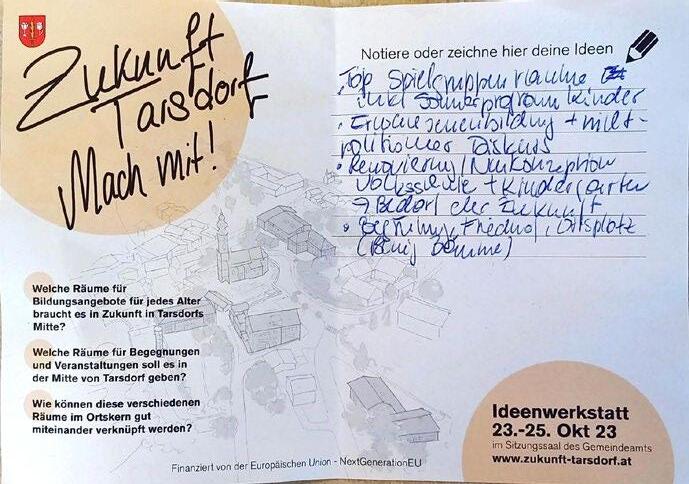 Zukunft
Tarsdorf
Mach mit!
Notiere oder zeichne hier deine Ideen
Top Spielgruppenräume
inkl Sommerprogramm Kinder
• Erwachsenenbildung +
politischer Diskurs
• Renovierung/Neukonzeption
Volksschule + Kindergarten
→ Bedarf der Zukunft
• Begrünung Friedhof, Ortsplatz
Welche Räume für
Bildungsangebote für jedes Alter
braucht es in Zukunft in Tarsdorfs
Mitte?
Welche Räume für Begegnungen
und Veranstaltungen soll es in
der Mitte von Tarsdorf geben?
Wie können diese verschiedenen
Räume im Ortskern gut
miteinander verknüpft werden?
Ideenwerkstatt
23.-25. Okt 23
im Sitzungssaal des Gemeindeamts
www.zukunft-tarsdorf.at
Finanziert von der Europäischen Union - NextGenerationEU